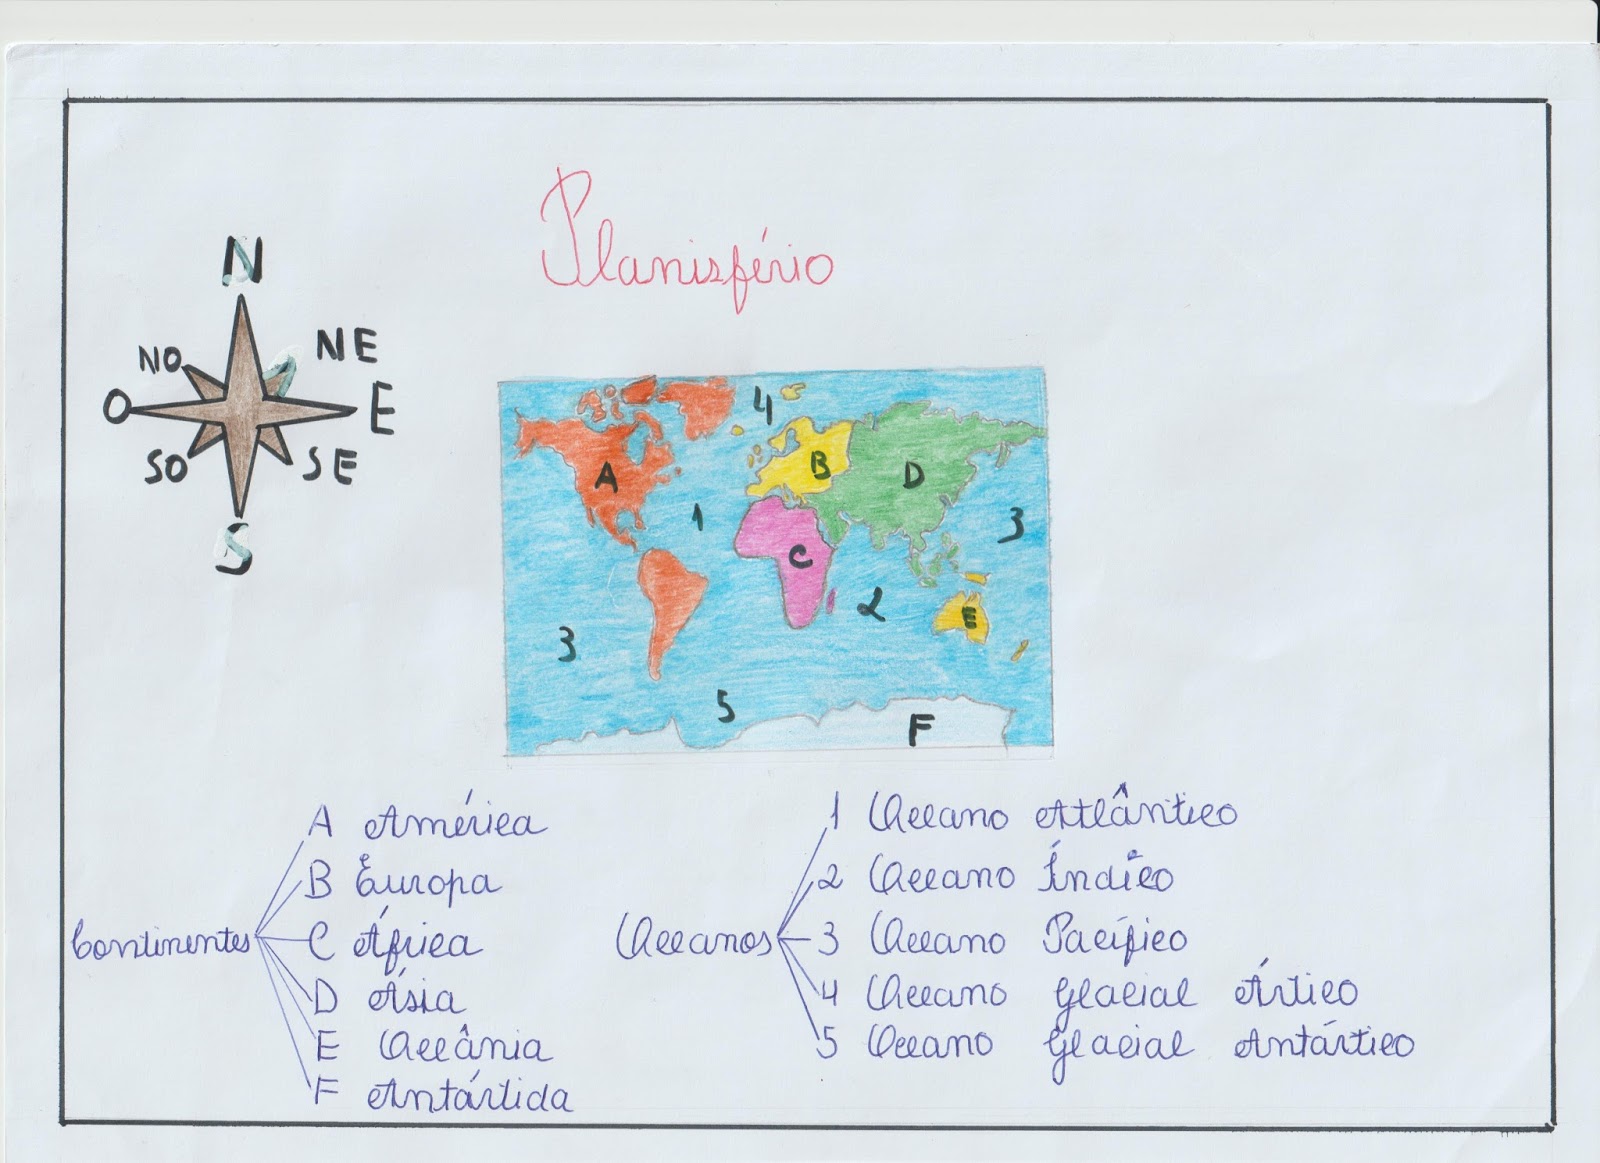 Planisfério
N
NO
NE
O
E
SO
SE
S
4
A
B
D
1
3
C
2
E
3
5
F
Continentes
A América
B Europa
C África
D Ásia
E Oceânia
F Antártida
Oceanos
1 Oceano Atlântico
2 Oceano Índico
3 Oceano Pacífico
4 Oceano Glacial Ártico
5 Oceano Glacial Antártico